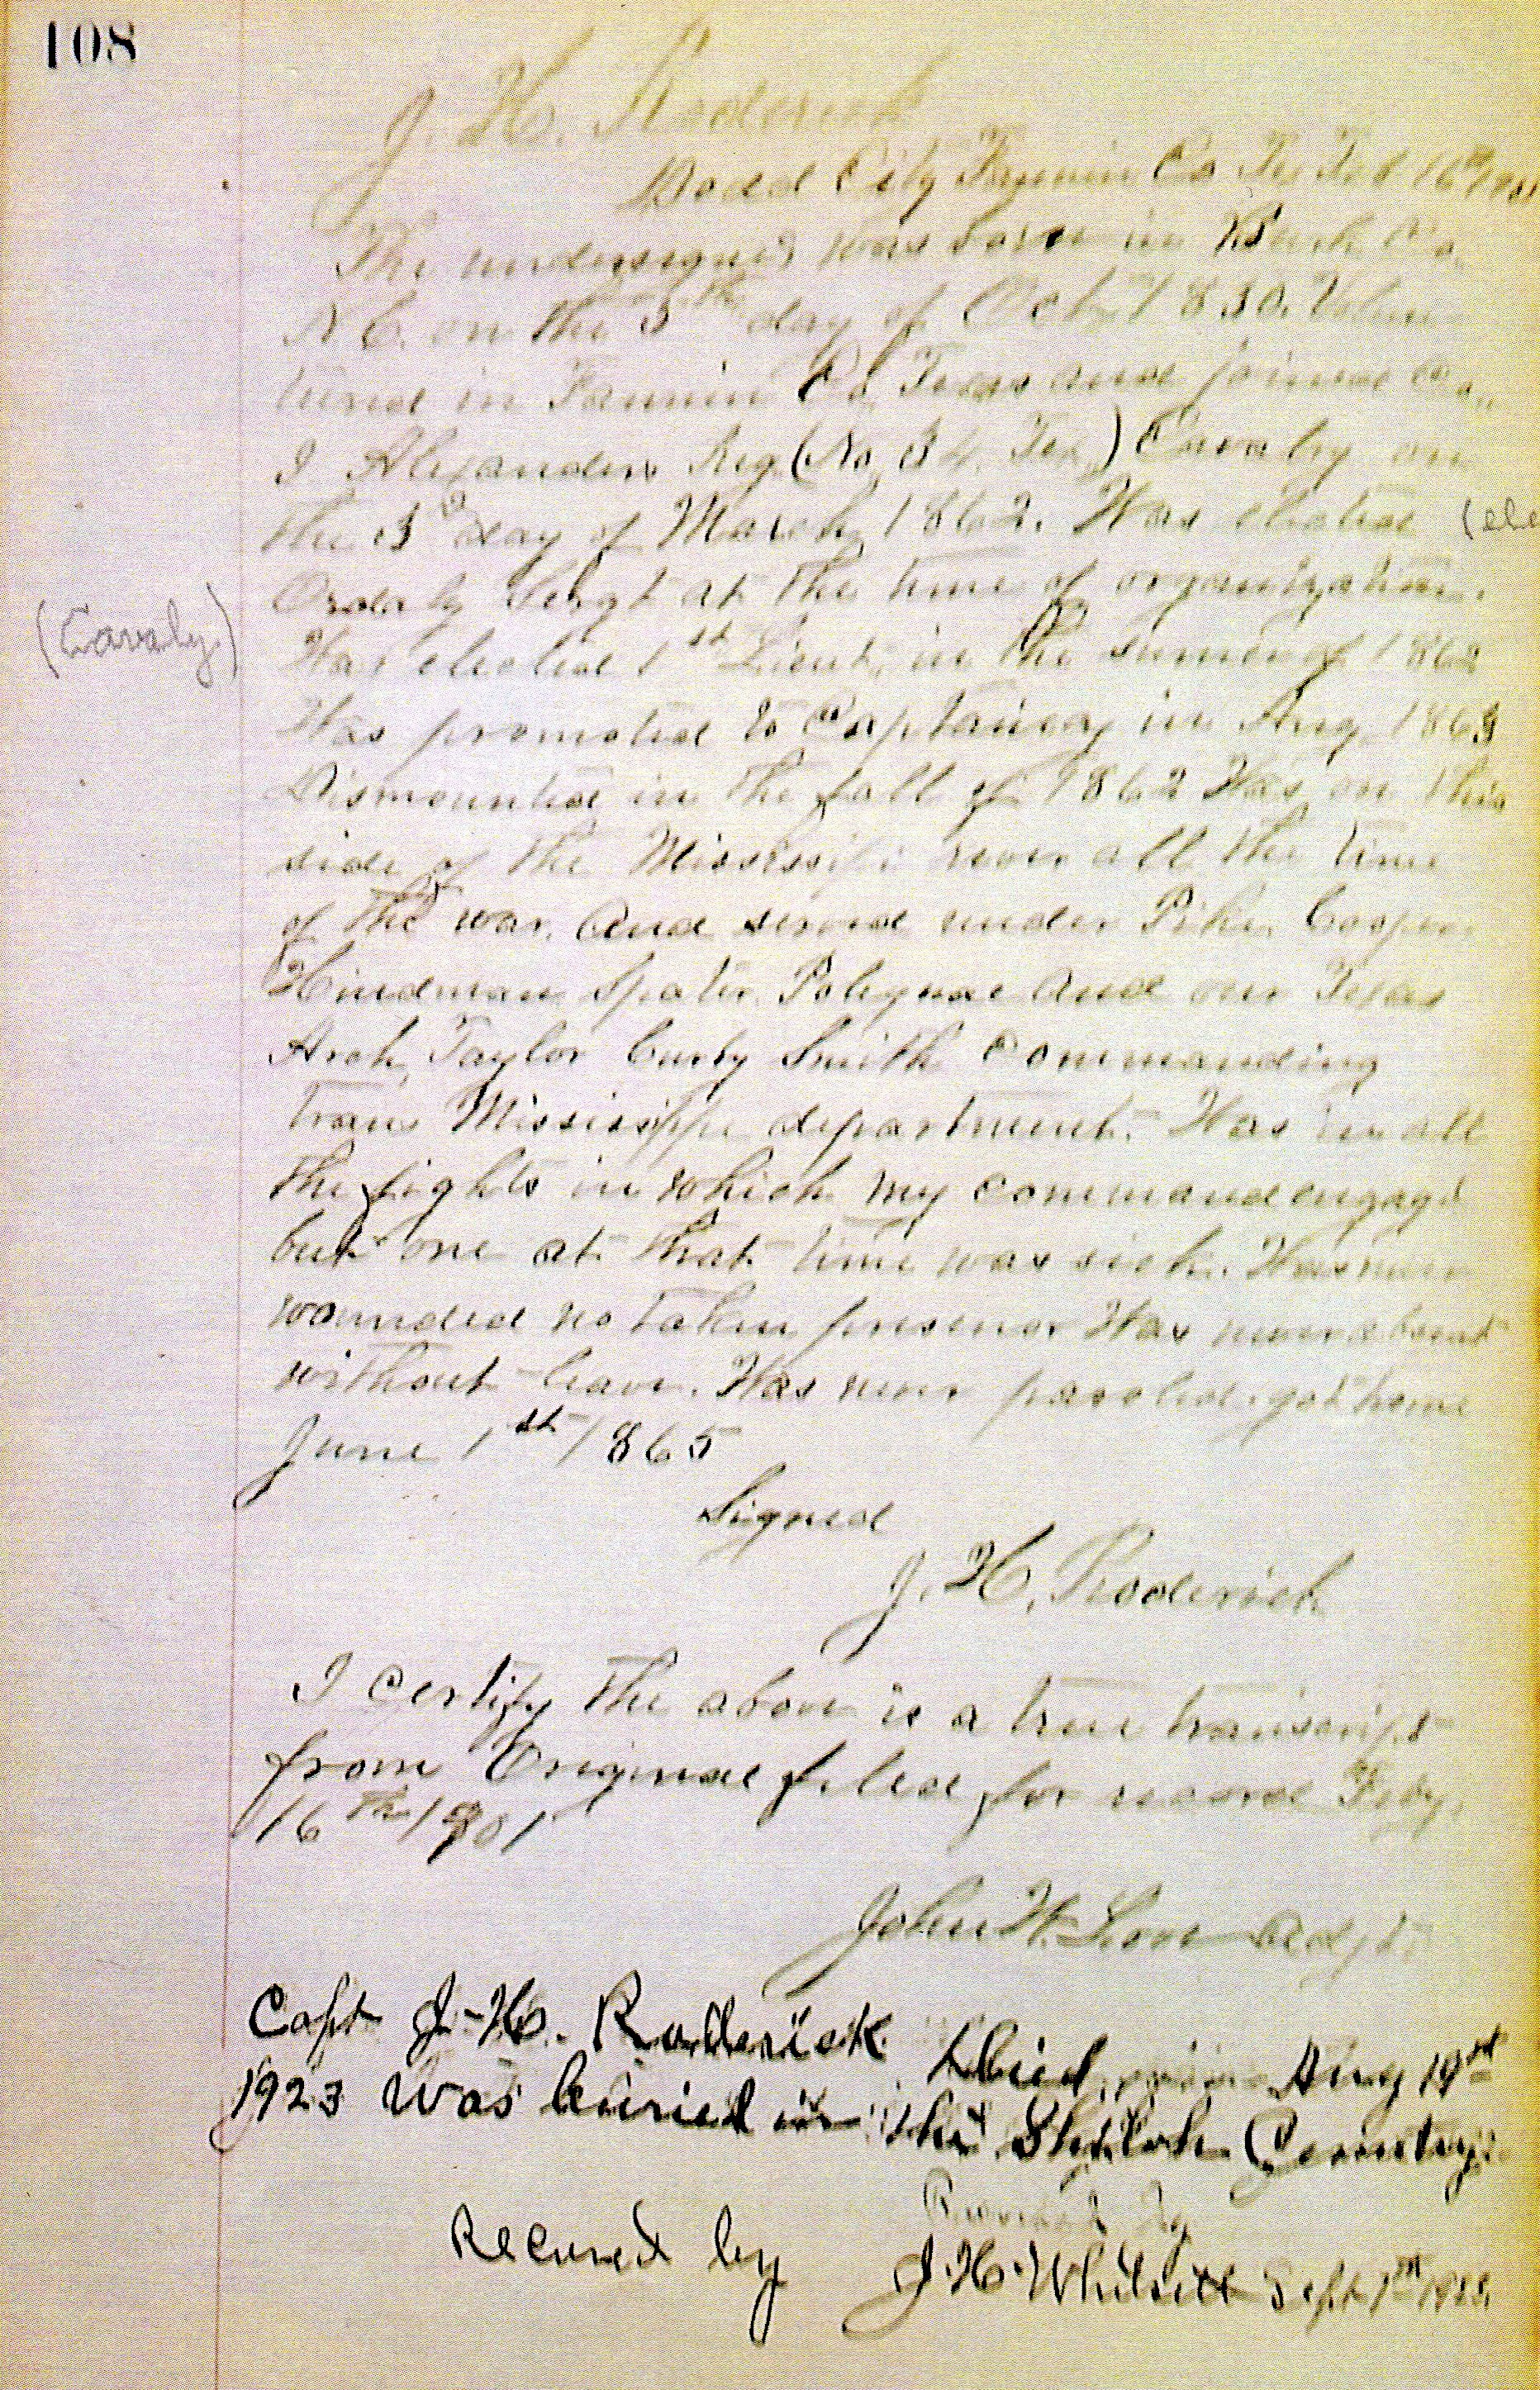 108
J. H. Roderick
Dodd City Fannin Co Tex Feb 16th 1901
The undersigned was born in Co.
N C. on the 5th day of Oct 1830. Volun
tered in Fannin Co, Texas and joined Co.,
I Alexanders Reg (No 34. Tex.) Cavalry on
the 3d day of March 1862. Was elected (ele
Orderly Sergt at the time of organization.
(Cavaly.)
Was elected 1st Lieut. in the sumer of 1862
Was promoted to Captaincy in Aug 1863
Dismounted in the fall of 1862 Was on this
side of the Mississipi river all the time
of the war. And served under Pike. Cooper.
Hindman Polignac and our Texas
Arch, Taylor Curby Smith Commanding
trans Mississippi department. Was in all
the fights in which my command engagd
but one at that time was sick. Was never
wounded no taken prisoner Was never absent
without leave. Was never paroled. got home
June 1st 1865
Signed
J. H. Roderick
I certify the above is a true transcript
from Original filed for record Feby.
16th 1901
John W. Love Adjt.
Capt J-H. Roderick Died Aug 19th
1923 was buried in the Shiloh Cemetery.
Recured by J. H. Whitsett Sept 1st 1923.